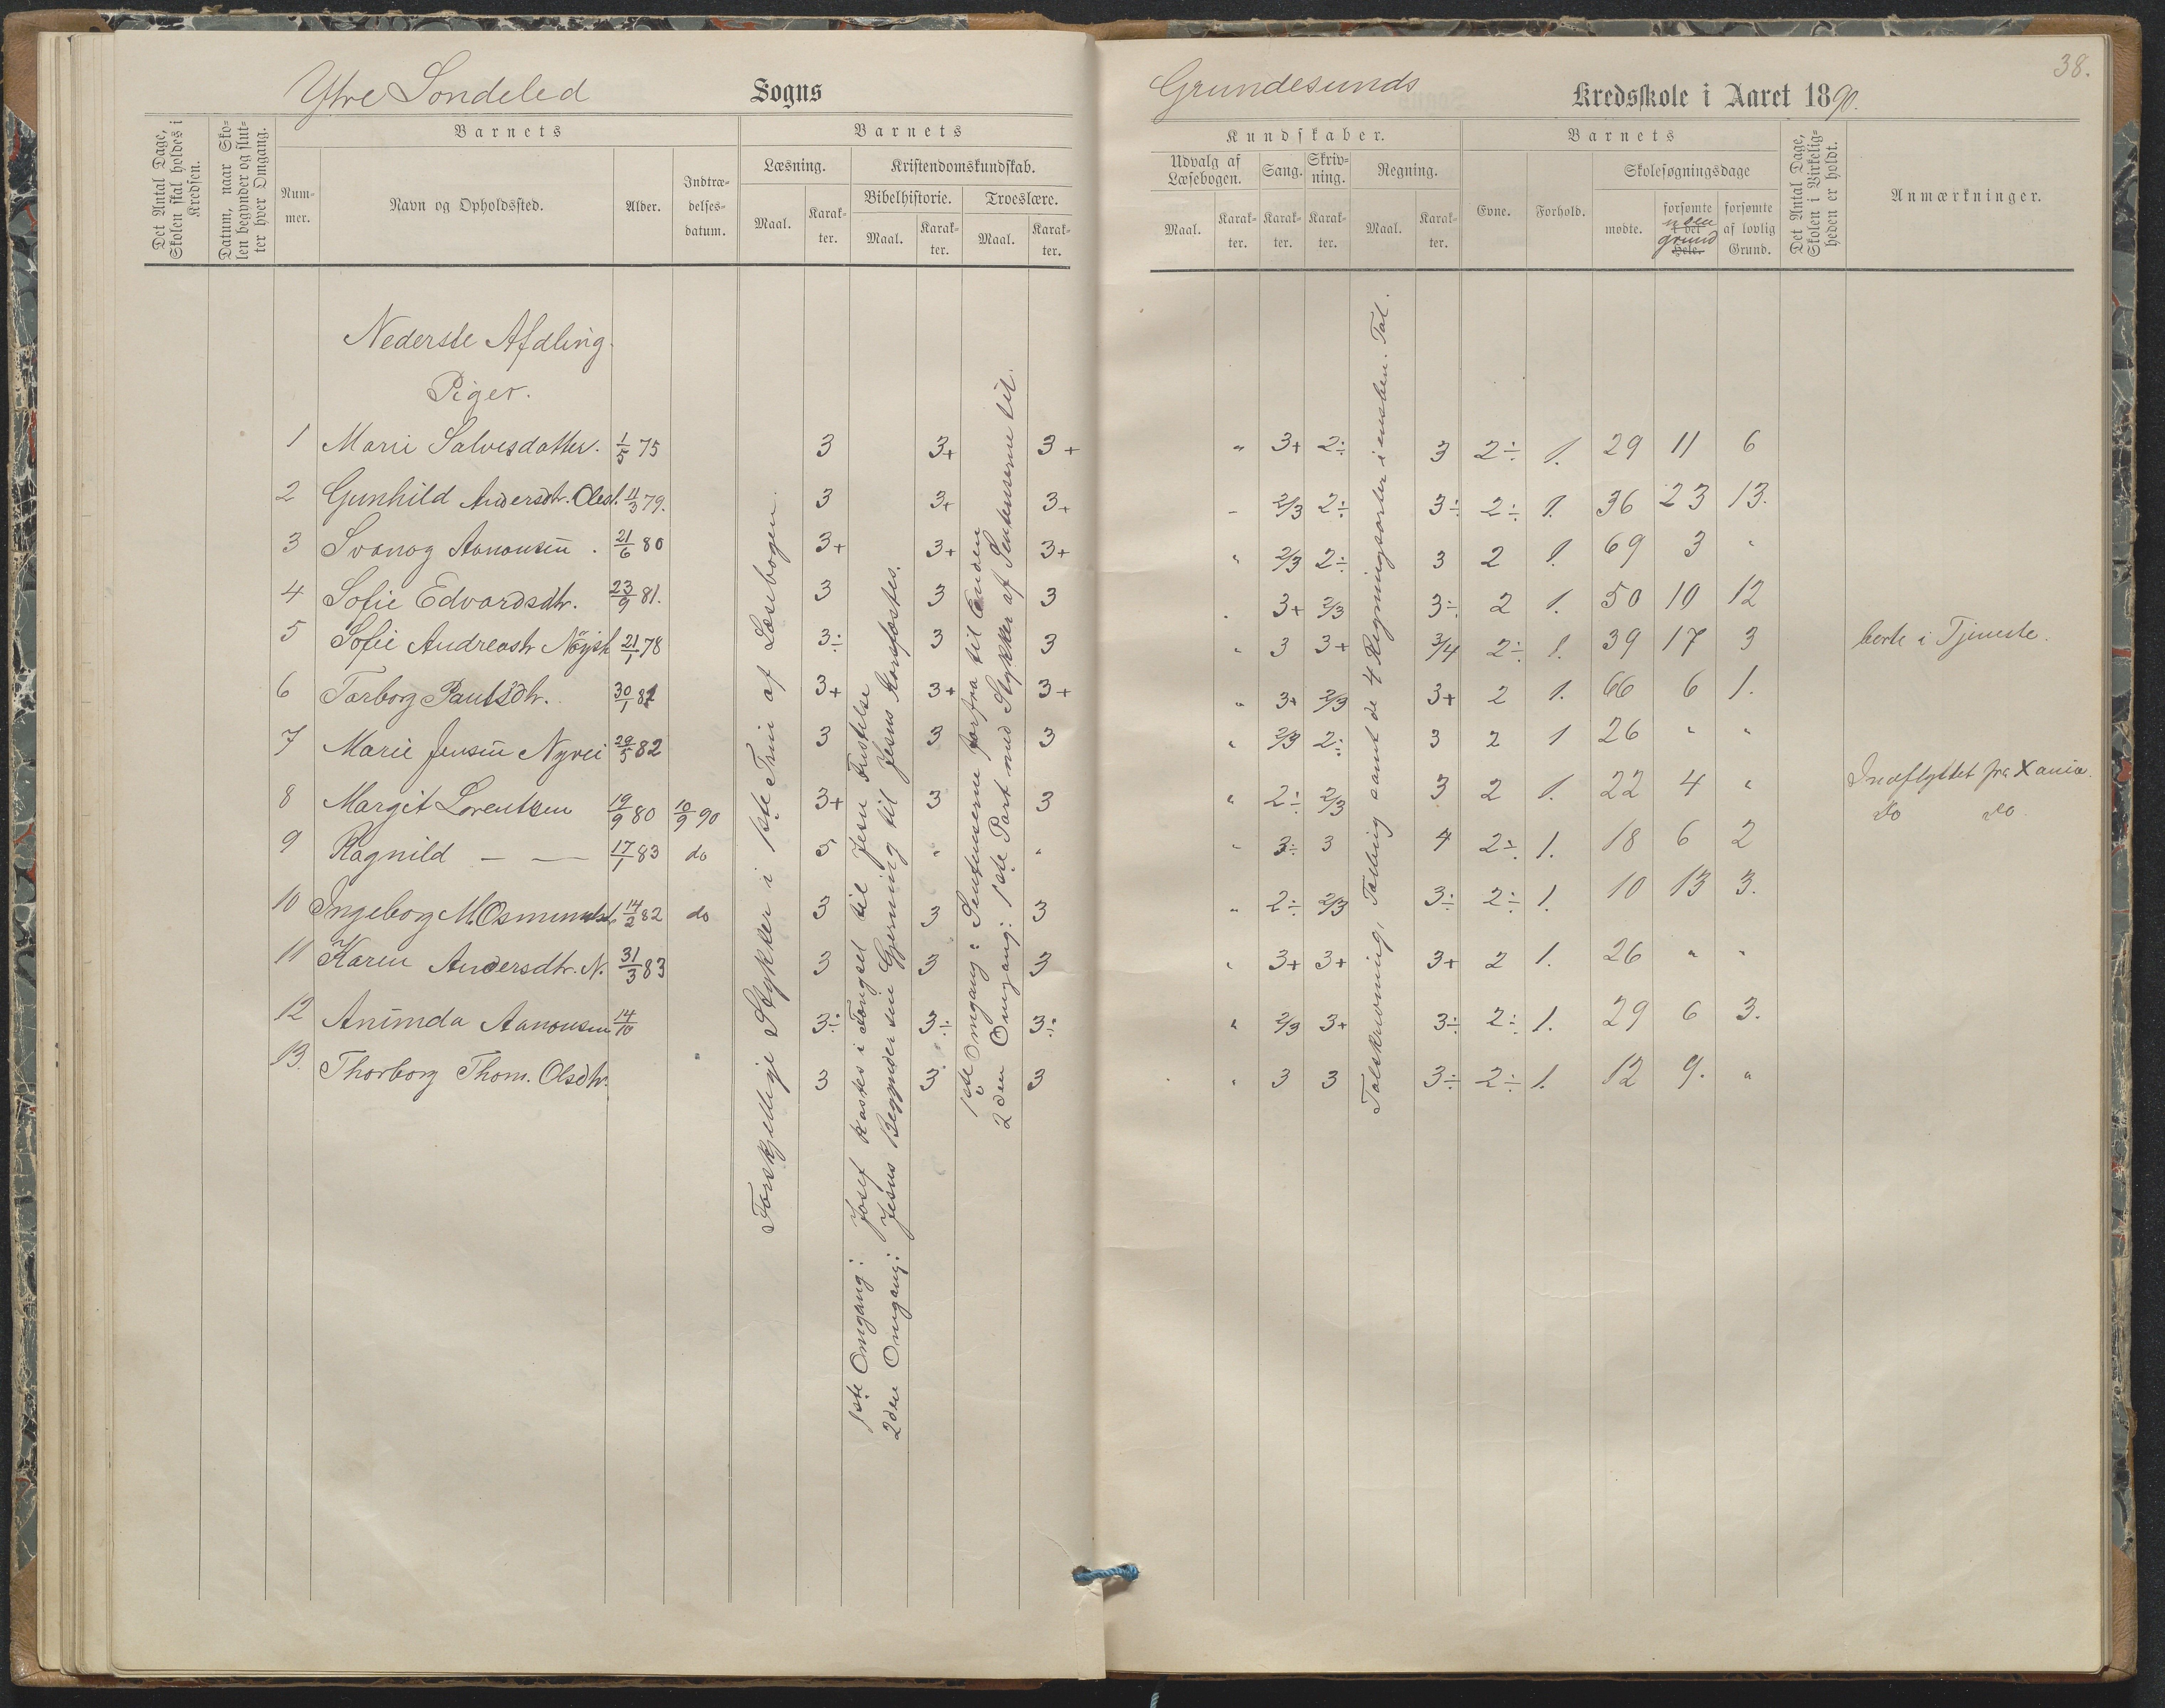 Ytre Söndeled Sogns
Det Antal Dage, Skolen skal holdes i Kredsen.
Datum, naar Skolen begynder og slutter hver Omgang.
Barnets
Nummer.
Navn og Opholdssted.
Alder.
Indtrædelsesdatum.
Barnets
Læsning.
Kristendomskundskab.
Bibelhistorie.
Troeslære.
Maal. Karakter. Maal. Karakter. Maal. Karakter.
Nederste Afdling.
Piger.
1 Marie Salvesdatter. 1/5 75 3 3+ 3+
2 Gunhild Andersdtr. Olest. 11/3 79. 3 3+ 3+
3 Svanog Aanonsen. 21/6 80 3+ 3+ 3+
4 Sofie Edvardsdtr. 23/9 81. 3 3 3
5 Sofie Andreasdtr 21/1 78 3÷ 3 3
6 Tarborg Paulsdtr. 30/1 81 3+ 3+ 3+
7 Marie Jensen Nyvei 29/5 82 3 3 3
8 Margit Lorentsen 19/9 80 10/9 90 3+ 3 3
9 Ragnild — — 17/1 83 do 5 " "
10 Ingeborg M. 14/2 82 do 3 3 3
11 Karen Andersdtr. N. 31/3 83 3 3 3
12 Aninda Aanonsen 14/10 3÷ 3÷ 3÷
13. Thorborg Thom. Olsdtr. 3 3 3
Forskjellige Stykker i 1ste Trin af Læsebogen
1ste Omgang: Josef kastes i Fængsel til Jesu Fristelse
2den Omgang: Jesus Begynder sin Gjerning til Jesus korsfæstes.
1ste Omgang: Sentenserne forfra til Enden
2den Omgang: 1ste Part med Stykker af Sentenserne til.
38.
Grundesunds Kredsskole i Aaret 1890.
Kundskaber.
Udvalg af Læsebogen.
Sang.
Skrivning.
Regning.
Maal. Karakter. Karakter. Karakter. Maal. Karakter.
Barnets
Evne.
Forhold.
Skolesøgningsdage
mødte.
forsømte i det Hele. uden grund
forsømte af lovlig Grund.
Det Antal Dage, Skolen i Virkeligheden er holdt.
Anmærkninger.
" 3+ 2÷ 3 2÷ 1. 29 11 6
" 2/3 2÷ 3÷ 2÷ 1. 36 23 13.
" 2/3 2÷ 3 2 1. 69 3 "
" 3+ 2/3 3÷ 2 1. 50 10 12
" 3 3+ 3/4 2÷ 1. 39 17 3 borte i Tjeneste.
" 3+ 2/3 3+ 2 1. 66 6 1.
" 2/3 2÷ 3 2 1 26 " "
" 2÷ 2/3 3 2 1. 22 4 " Indflyttet fra Xania.
" 3÷ 3 4 2÷ 1. 18 6 2 do do
" 2÷ 2/3 3÷ 2÷ 1. 10 13 3.
" 3+ 3+ 3+ 2 1. 26 " "
" 2/3 3+ 3÷ 2÷ 1. 29 6 3.
" 3 3 3÷ 2÷ 1. 12 9. "
Talskrivning, Tælling samt de 4 Regningsarter i ensben. Tal.